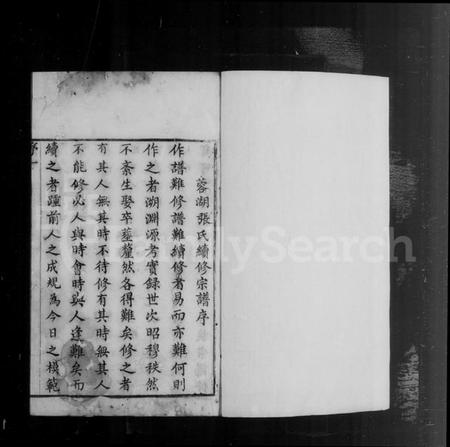 蓉湖張氏續修宗譜序
作譜難修譜難續修者易而亦難何則
作之者溯淵源考實録世次昭穆秩然
不紊生娶卒塟釐然各得難矣修之者
有其人無其時不待修有其時無其人
不能修必人與時會時與人逢難矣而
續之者踵前人之成規為今日之模範
FamilySearch